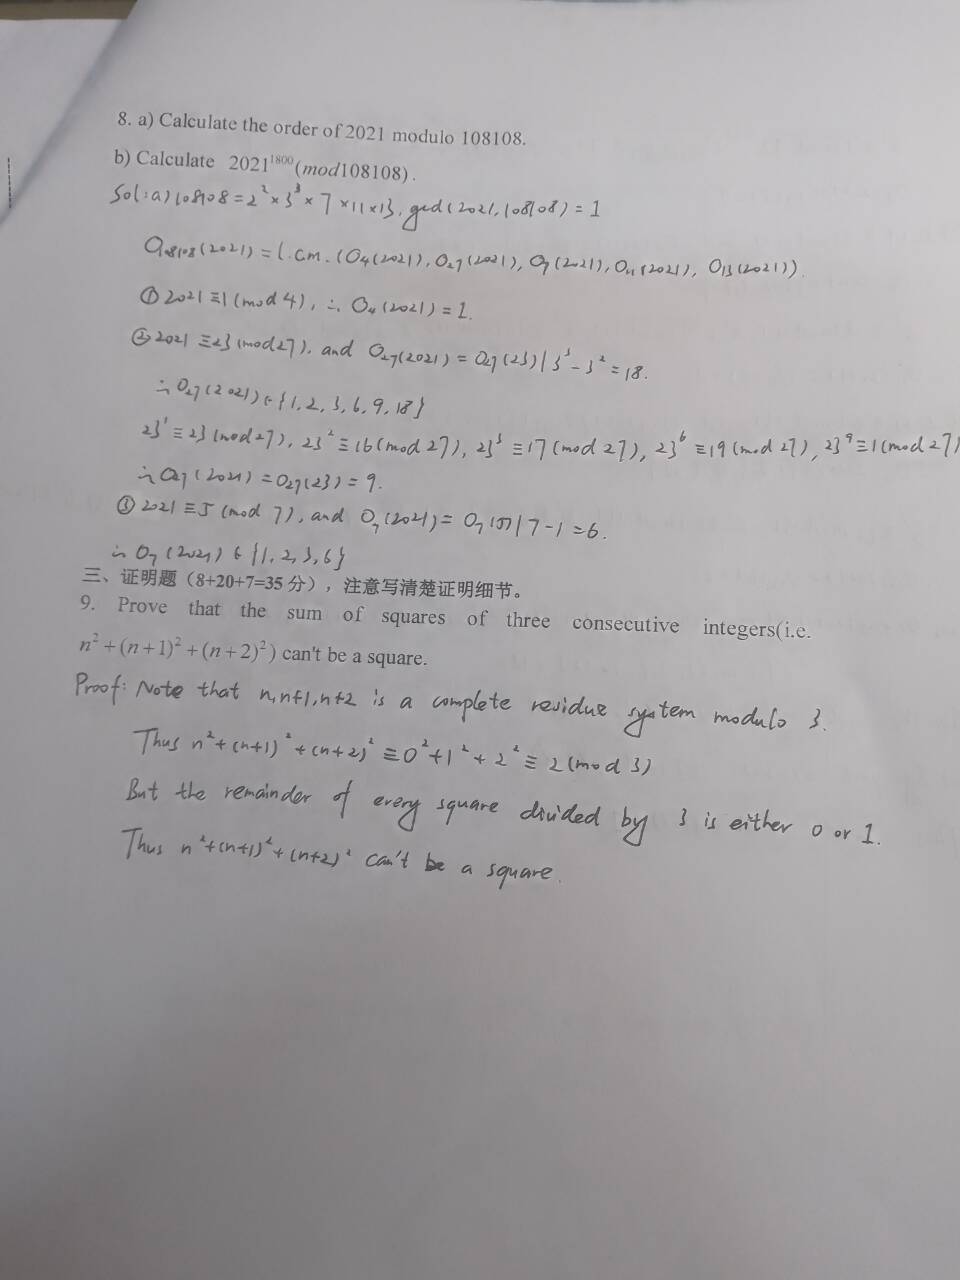 8. a) Calculate the order of 2021 modulo 108108.
b) Calculate 2021^1800(mod108108).
Sol: a) 108108 = 2^2 × 3^3 × 7 × 11 × 13, gcd(2021, 108108) = 1
O_108108(2021) = l.c.m.(O_4(2021), O_27(2021), O_7(2021), O_11(2021), O_13(2021)).
① 2021 ≡ 1 (mod 4), ∴ O_4(2021) = 1.
② 2021 ≡ 23 (mod 27), and O_27(2021) = O_27(23) | 3^3 - 3^2 = 18.
∴ O_27(2021) ∈ {1, 2, 3, 6, 9, 18}
23^1 ≡ 23 (mod 27), 23^2 ≡ 16 (mod 27), 23^3 ≡ 17 (mod 27), 23^6 ≡ 19 (mod 27), 23^9 ≡ 1 (mod 27)
∴ O_27(2021) = O_27(23) = 9.
③ 2021 ≡ 5 (mod 7), and O_7(2021) = O_7(5) | 7-1 = 6.
∴ O_7(2021) ∈ {1, 2, 3, 6}
三、证明题（8+20+7=35 分），注意写清楚证明细节。
9. Prove that the sum of squares of three consecutive integers(i.e.
n^2+(n+1)^2+(n+2)^2) can't be a square.
Proof: Note that n, n+1, n+2 is a complete residue system modulo 3.
Thus n^2+(n+1)^2+(n+2)^2 ≡ 0^2+1^2+2^2 ≡ 2 (mod 3)
But the remainder of every square divided by 3 is either 0 or 1.
Thus n^2+(n+1)^2+(n+2)^2 can't be a square.